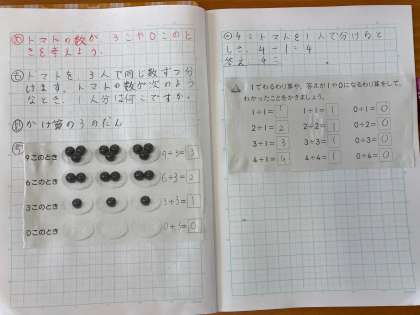 トマトの数が 3こや0このと
きを考えよう。
トマトを 3人で同じ数ずつ分
けます。トマトの数が次のよう
なとき、1人分は何こですか。
かけ算の3のだん
9このとき 9÷3=3
6このとき 6÷3=2
3このとき 3÷3=1
0このとき 0÷3=0
4こトマトを1人で分けると
き、4÷1=4
答え 4こ
1でわるわり算や、答えが1や0になるわり算をして、
わかったことをかきましょう。
1÷1=1 1÷1=1 0÷1=0
2÷1=2 2÷2=1 0÷2=0
3÷1=3 3÷3=1 0÷3=0
4÷1=4 4÷4=1 0÷4=0